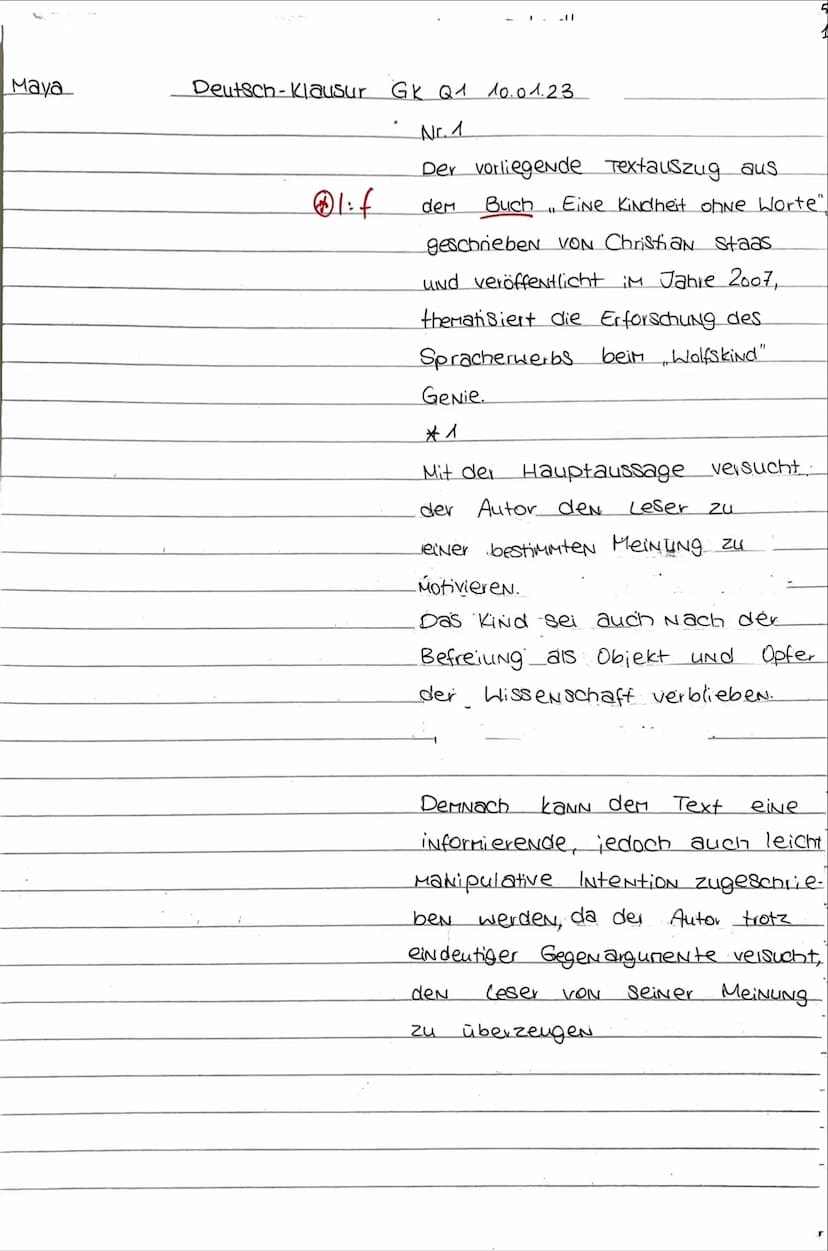 Maya Deutsch-Klausur GK Q1 10.01.23
Nr. 1
Der vorliegende Textauszug aus
I: f dem Buch „Eine Kindheit ohne Worte",
geschrieben von Christian Staas
und veröffentlicht im Jahre 2007,
thematisiert die Erforschung des
Spracherwerbs beim „Wolfskind"
Genie.
*1
Mit der Hauptaussage versucht
der Autor den Leser zu
einer bestimmten Meinung zu
motivieren.
Das Kind sei auch nach der
Befreiung als Objekt und Opfer
der Wissenschaft verblieben.
Demnach kann dem Text eine
informierende, jedoch auch leicht
manipulative Intention zugeschrie-
ben werden, da der Autor trotz
eindeutiger Gegenargumente versucht,
den Leser von seiner Meinung
zu überzeugen